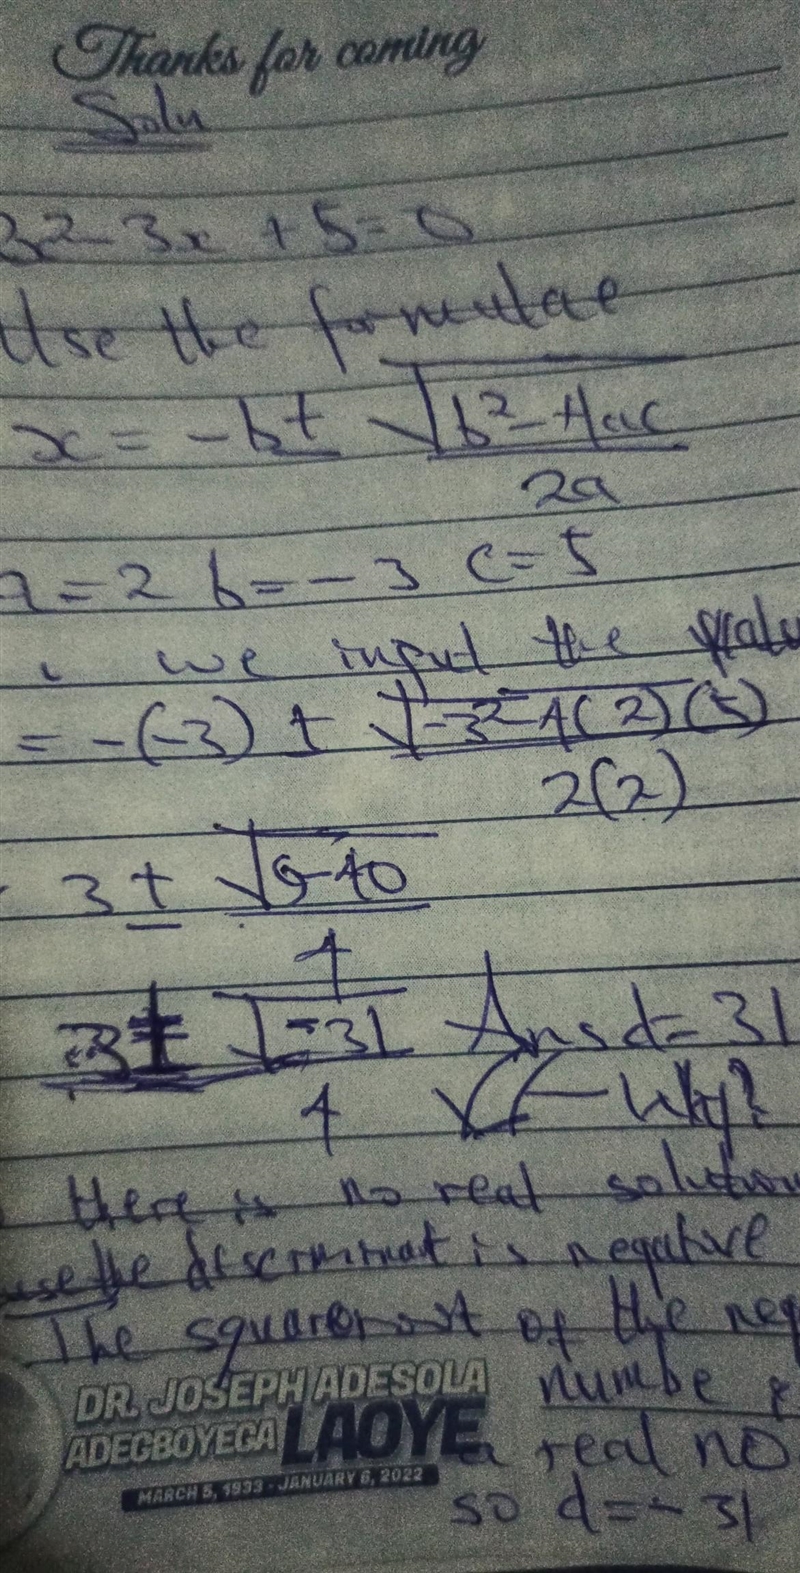 Thanks for coming
Solu
2-3x + 5 = 0
Use the formulae
x = -b ± √b²-4ac
2a
= 2 b = -3 c = 5
we input the
= -(-3) ± √-3²-4(2)(5)
2(2)
3 ± √9-40
4
3 ± √-31 Ans d = 31
4 Why?
there is no real solution
the discriminant is negative
The squareroot of the
DR. JOSEPH ADESOLA numbe
ADEGBOYEGA LAOYE a real no
MARCH 5, 1933 - JANUARY 6, 2022
so d = -31